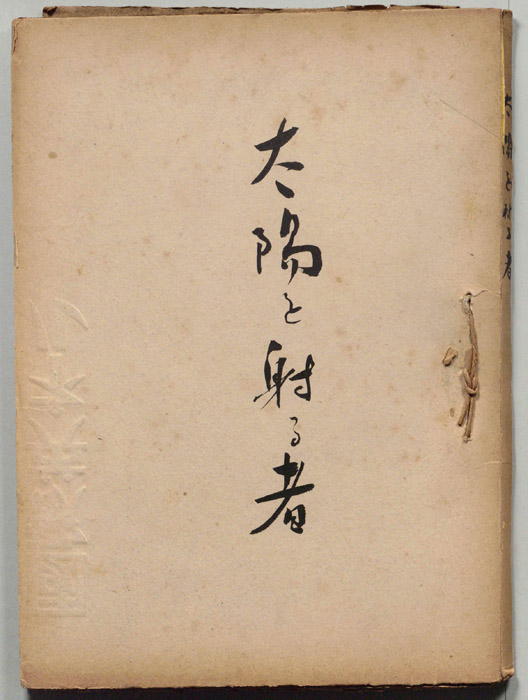 太陽を射る者
太陽を射る者